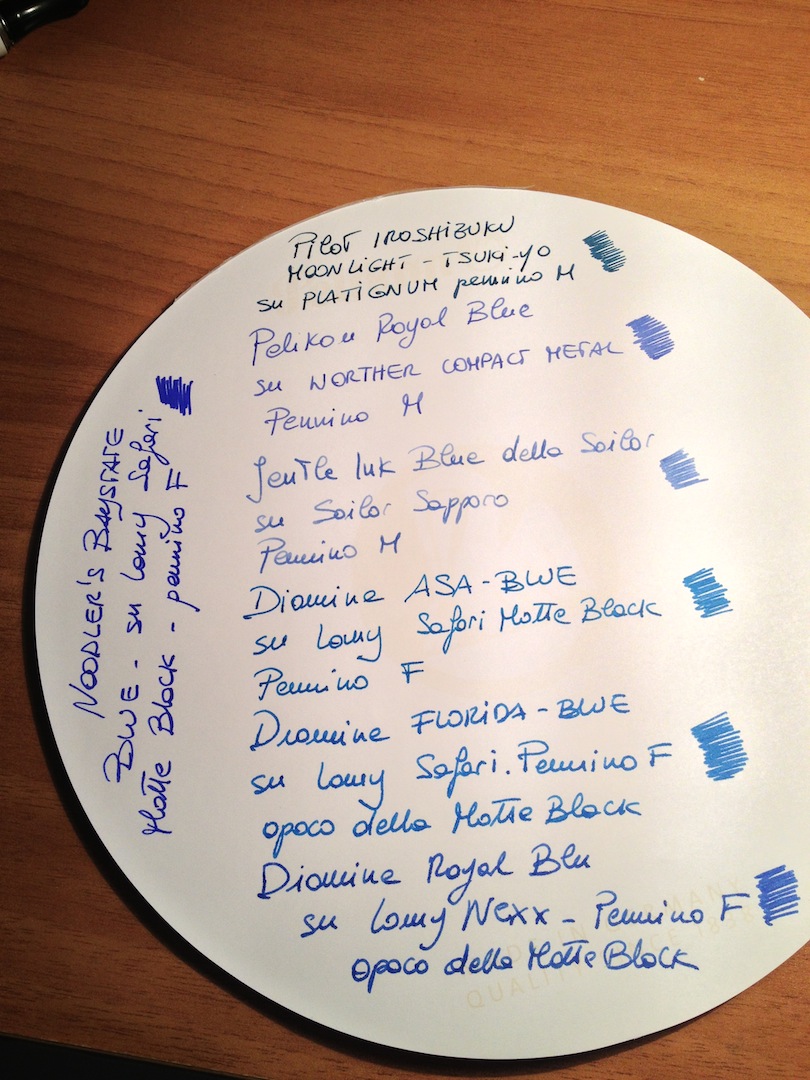 PILOT IROSHIZUKU
MOONLIGHT - TSUKI-YO
su PLATIGNUM pennino M
Pelikan Royal Blue
su NORTHER COMPACT METAL
Pennino M
Gentle Ink Blue della Sailor
su Sailor Sapporo
Pennino M
Diamine ASA-BLUE
su Lamy Safari Matte Black
Pennino F
Diamine FLORIDA-BLUE
su Lamy Safari. Pennino F
opaco della Matte Black
Diamine Royal Blu
su Lamy Nexx - Pennino F
opaco della Matte Black
NOODLER'S BAYSTATE
BLUE - su Lamy Safari
Matte Black - pennino F
IN GERMANY
QUALITY SINCE 1838